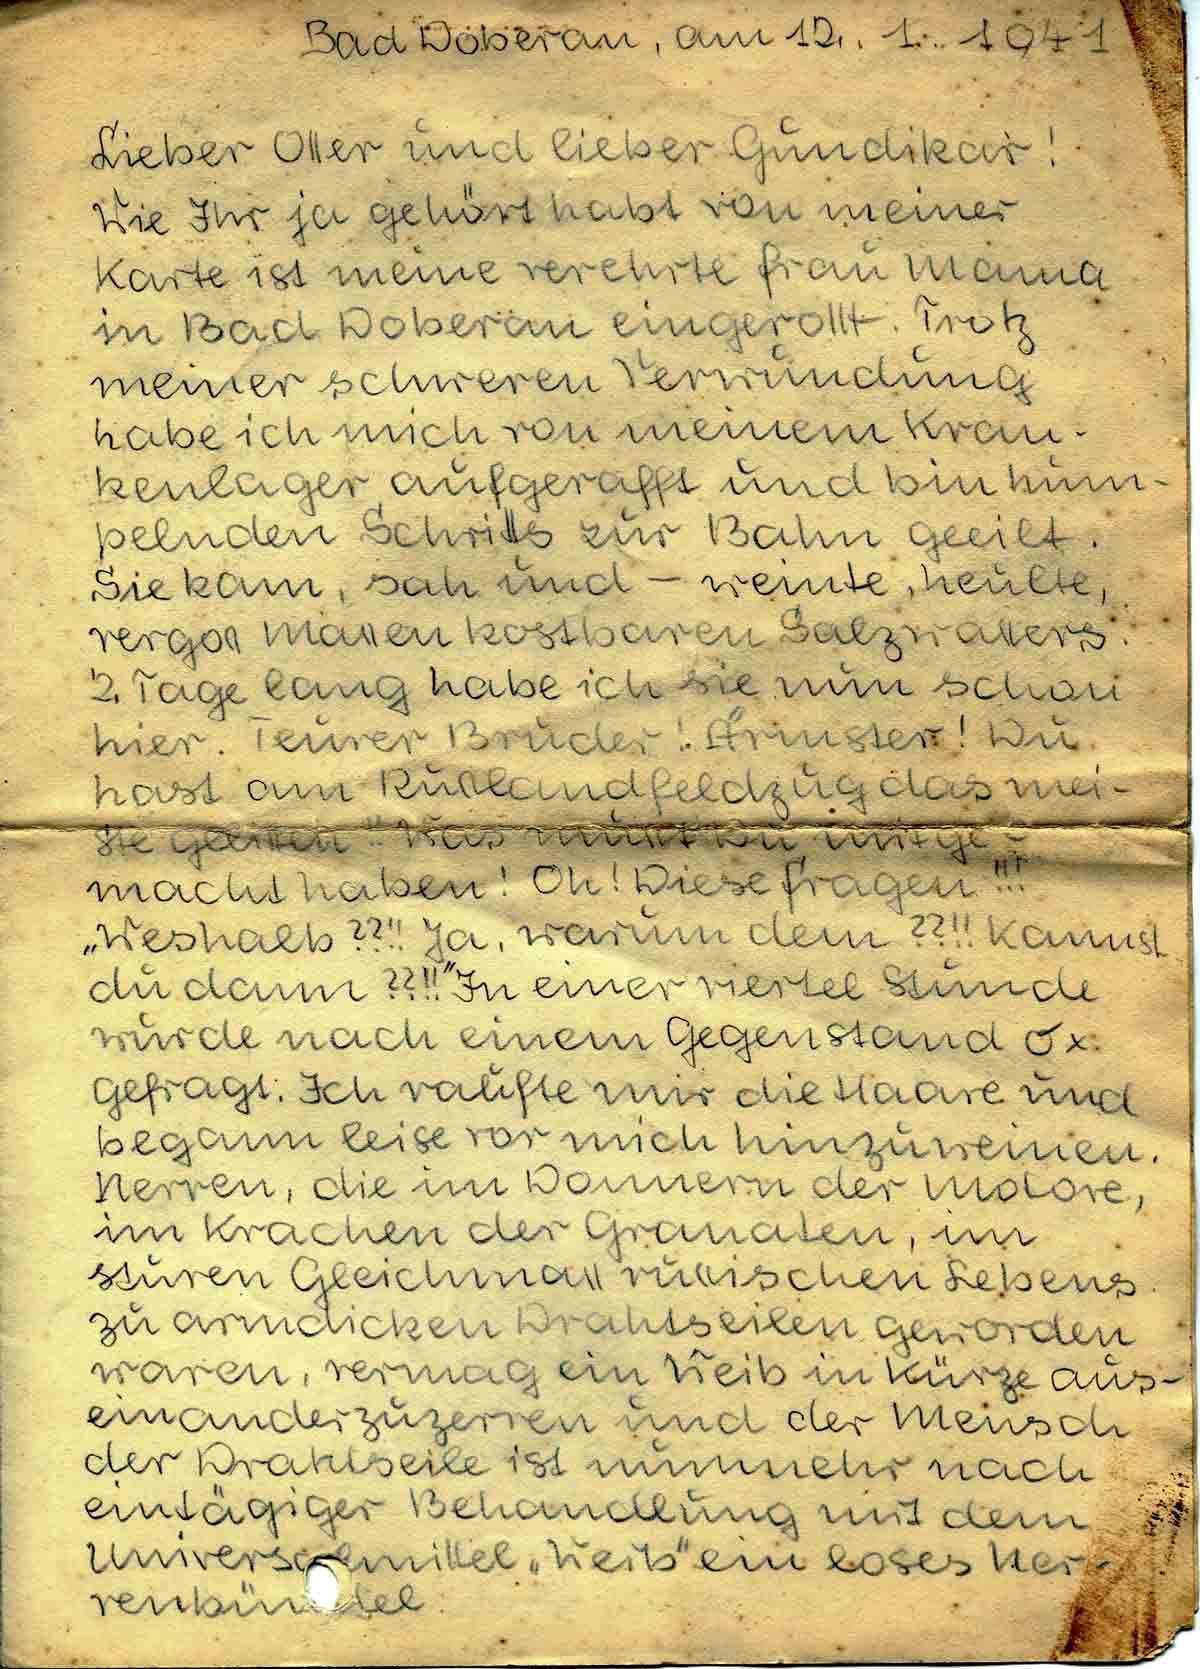 Bad Doberan, am 12. 1. 1941
Lieber Otter und lieber Gundikar!
Wie Ihr ja gehört habt von meiner
Karte ist meine verehrte Frau Mama
in Bad Doberan eingerollt. Trotz
meiner schweren Verwundung
habe ich mich von meinem Kran-
kenlager aufgerafft und bin hum-
pelnden Schritts zur Bahn geeilt.
Sie kam, sah und – weinte, heulte,
vergoß Massen kostbaren Salzwassers.
2 Tage lang habe ich sie nun schon
hier. Teurer Bruder! Ärmster! Du
hast am Rußlandfeldzug das mei-
ste gelitten!! Was mußt Du mitge-
macht haben! Oh! Diese Fragen!!!
„Weshalb??!! Ja, warum denn??!! Kannst
du dann??!!" In einer viertel Stunde
wurde nach einem Gegenstand 5x
gefragt. Ich raufte mir die Haare und
begann leise vor mich hinzuweinen.
Nerven, die im Donnern der Motore,
im Krachen der Granaten, im
sturen Gleichmaß russischen Lebens
zu armdicken Drahtseilen geworden
waren, vermag ein Weib in Kürze aus-
einanderzuzerren und der Mensch
der Drahtseile ist nunmehr nach
eintägiger Behandlung mit dem
Universalmittel „Weib" ein loses Ner-
venbündel